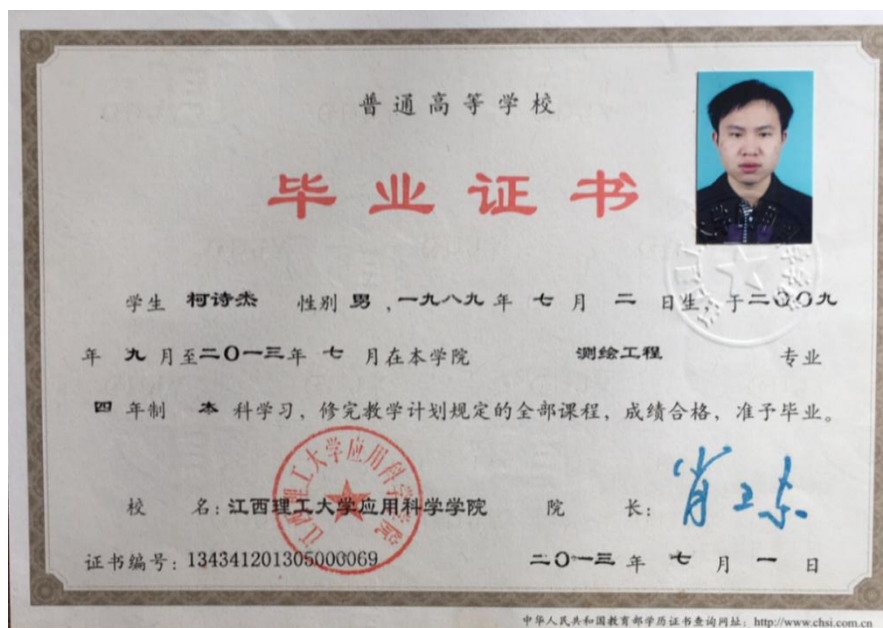 普通高等学校
毕业证书
学生 柯诗杰 性别 男 ，一九八九 年 七 月 二 日生，于二〇〇九
年 九 月至二〇一三年 七 月在本学院 测绘工程 专业
四 年制 本 科学习，修完教学计划规定的全部课程，成绩合格，准予毕业。
江西理工大学应用科学学院
校 名：江西理工大学应用科学学院 院 长：
证书编号：134341201305000069 二〇一三 年 七 月 一 日
中华人民共和国教育部学历证书查询网址：http://www.chsi.com.cn